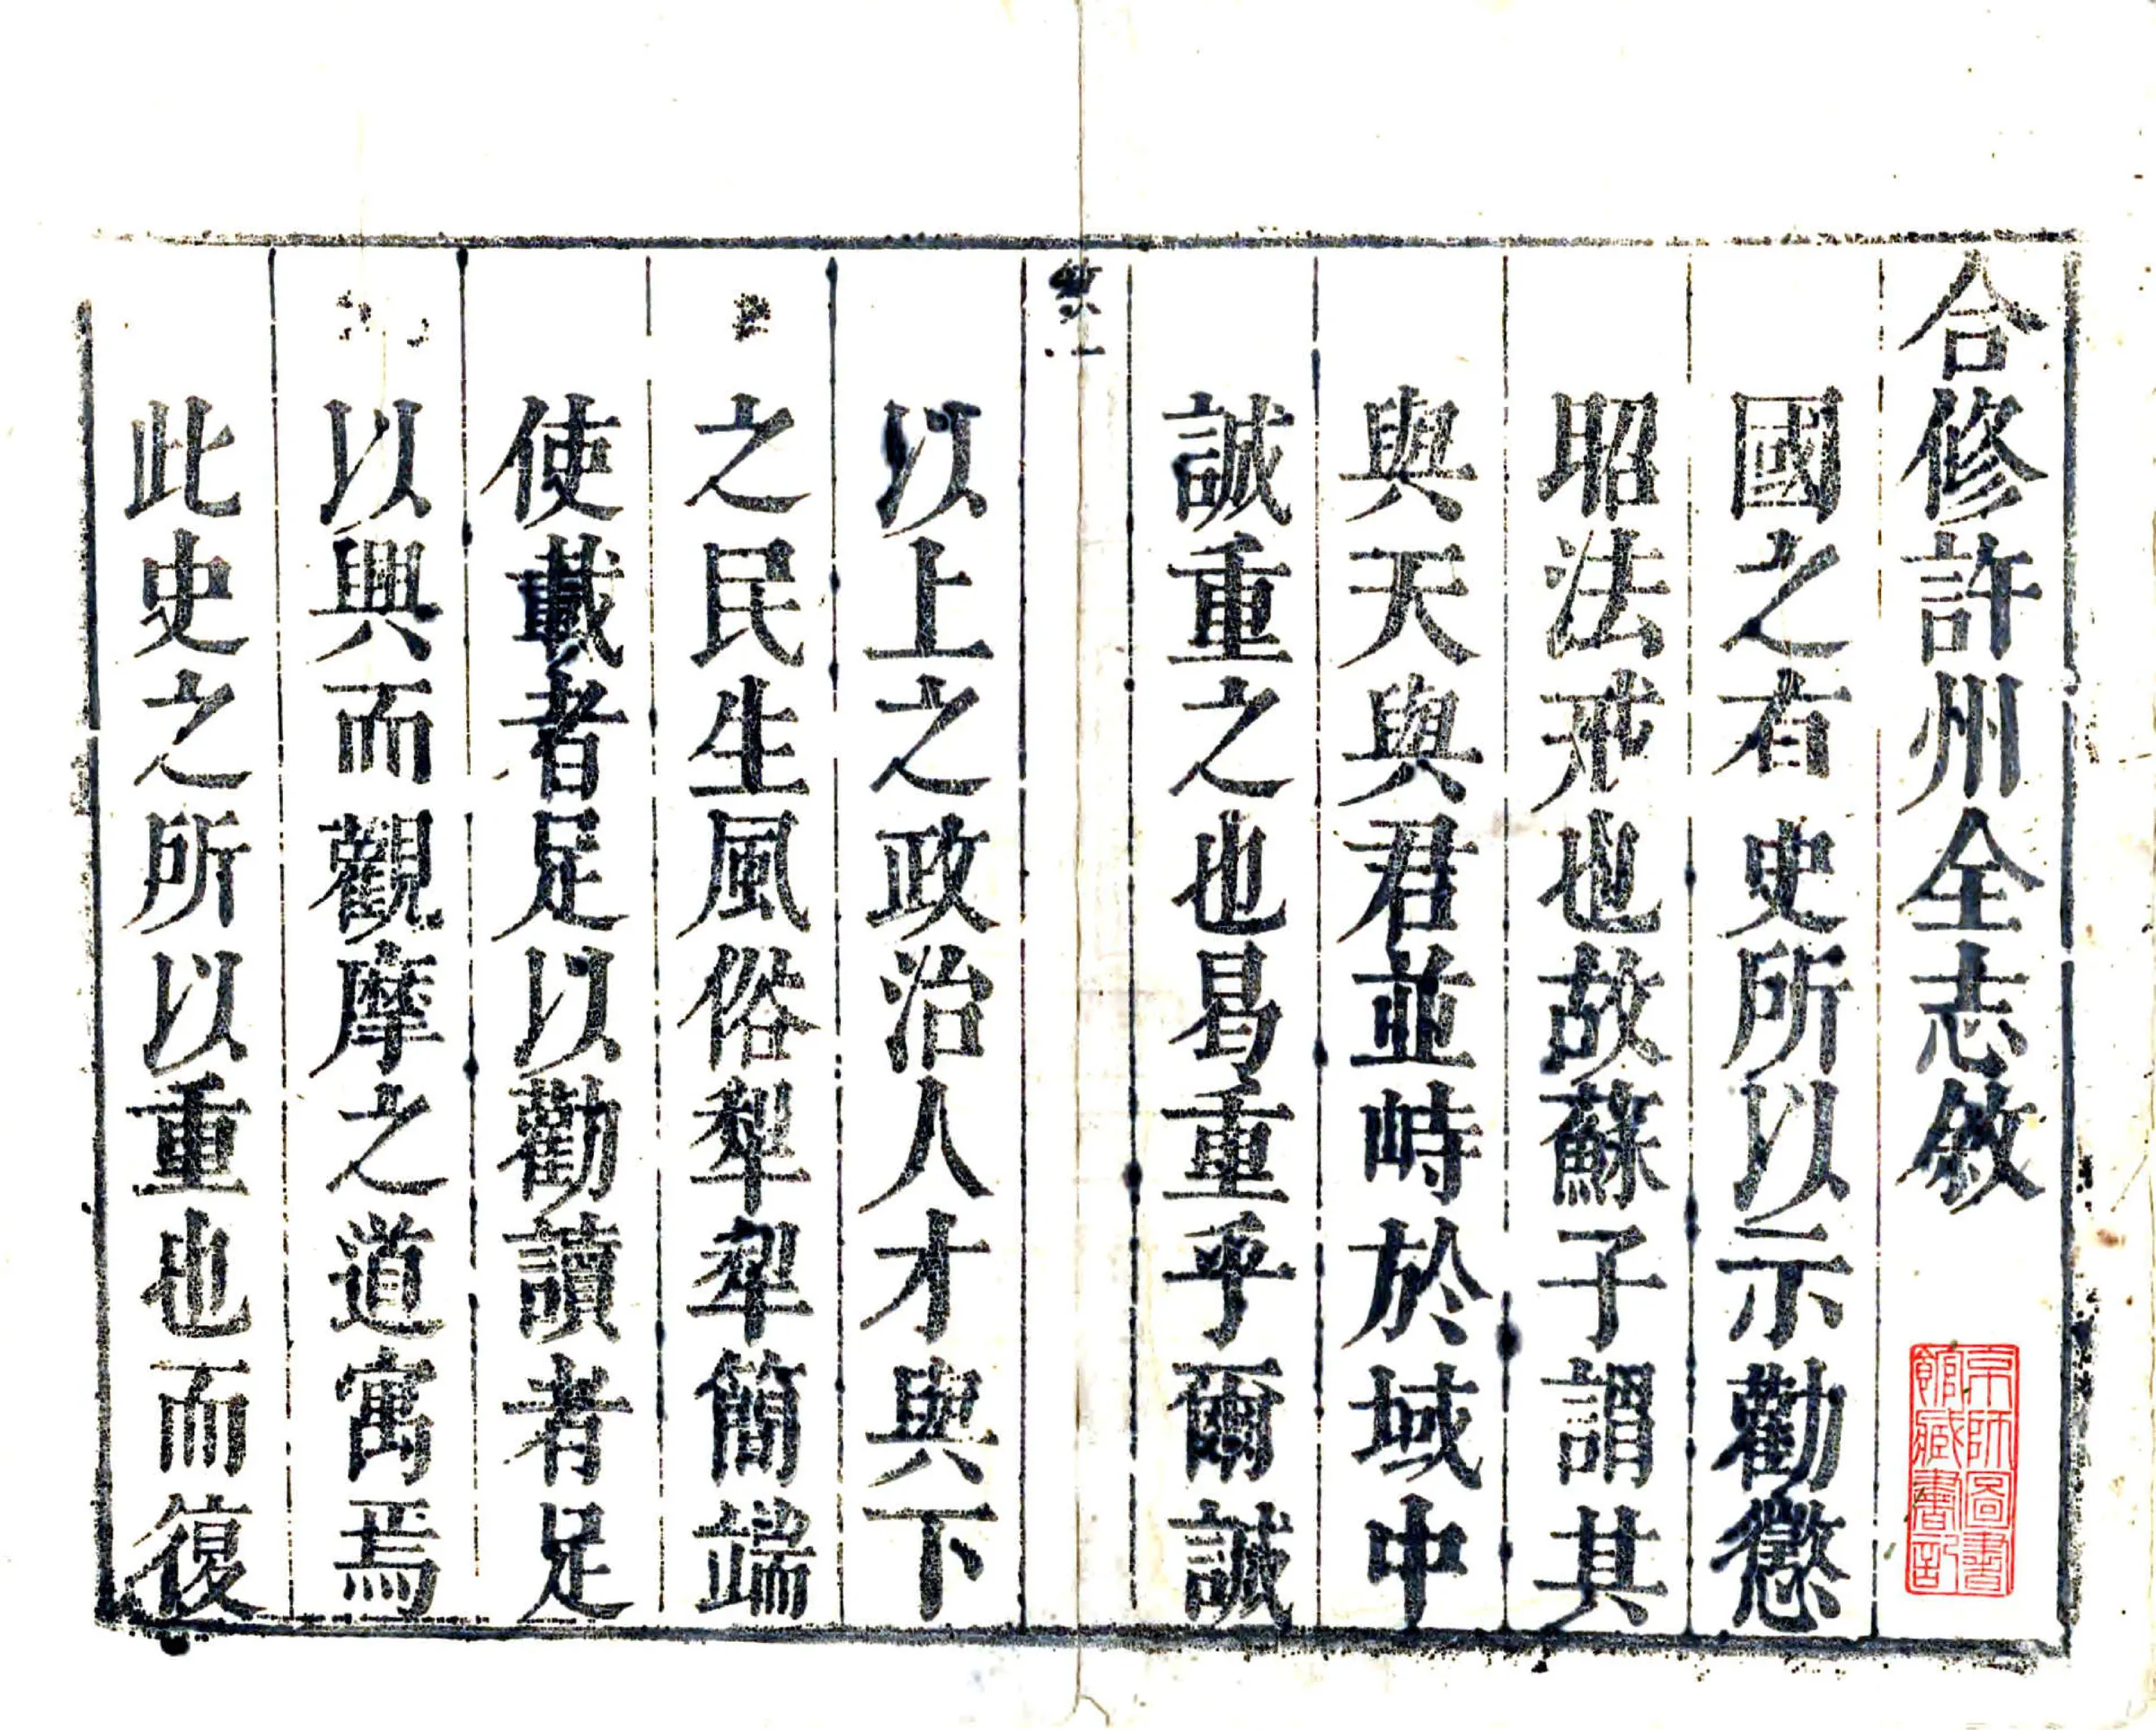 合修許州全志敘
京師圖書
館藏書記
國之有史所以示勸懲
昭法戒也故蘇子謂其
與天與君並峙於域中
誠重之也曷重乎爾誠
敘一
以上之政治人才與下
之民生風俗犂犂簡端
使載者足以勸讀者足
以興而觀摩之道寓焉
此史之所以重也而復